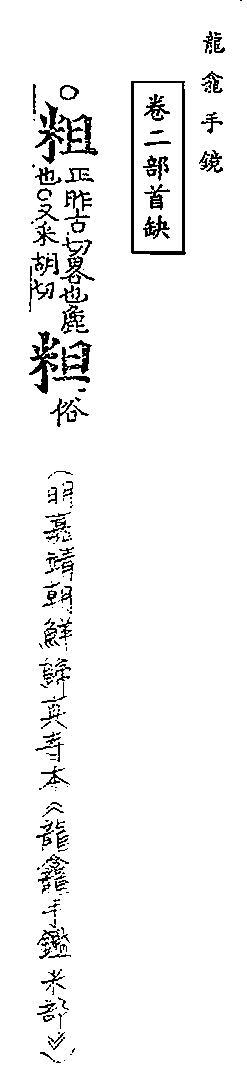 龍龕手鏡
卷二部首缺
○粗正昨古切畧也麁也○又采胡切 俗
(明嘉靖朝鮮歸真寺本《龍龕手鑑米部》)